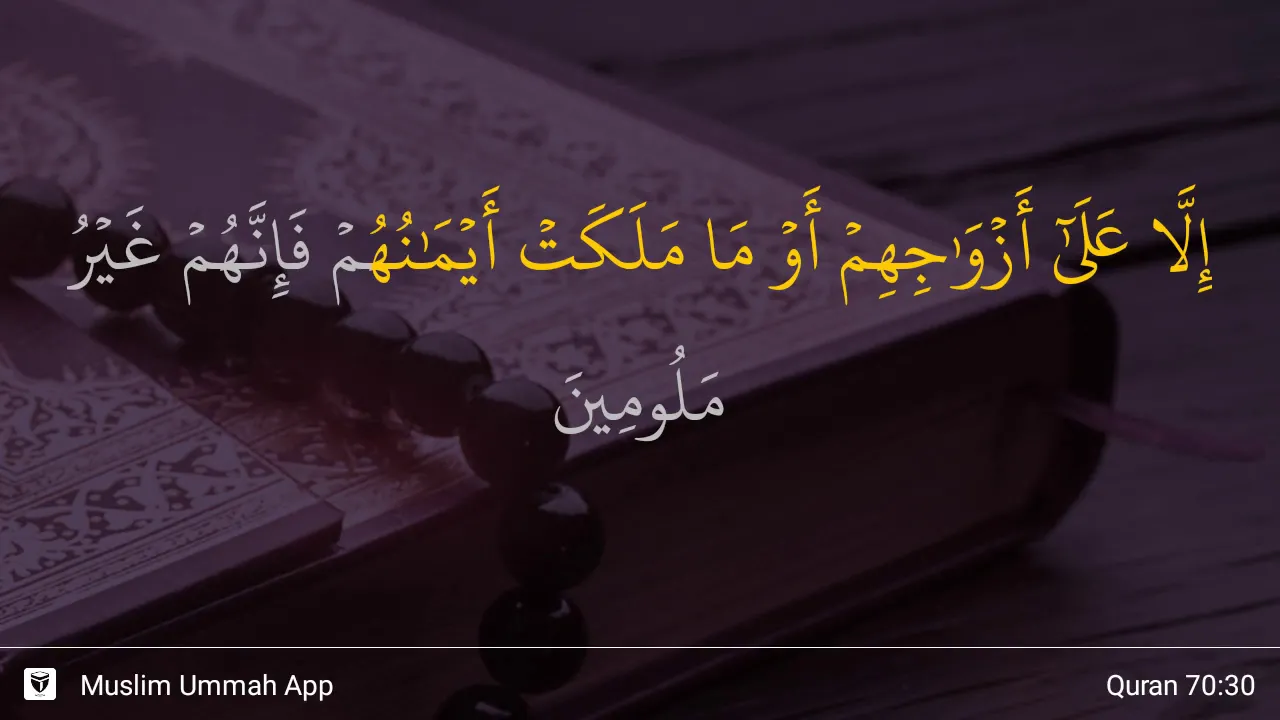 إِلَّا عَلَىٰٓ أَزۡوَٰجِهِمۡ أَوۡ مَا مَلَكَتۡ أَيۡمَٰنُهُمۡ فَإِنَّهُمۡ غَيۡرُ
مَلُومِينَ
Muslim Ummah App
Quran 70:30